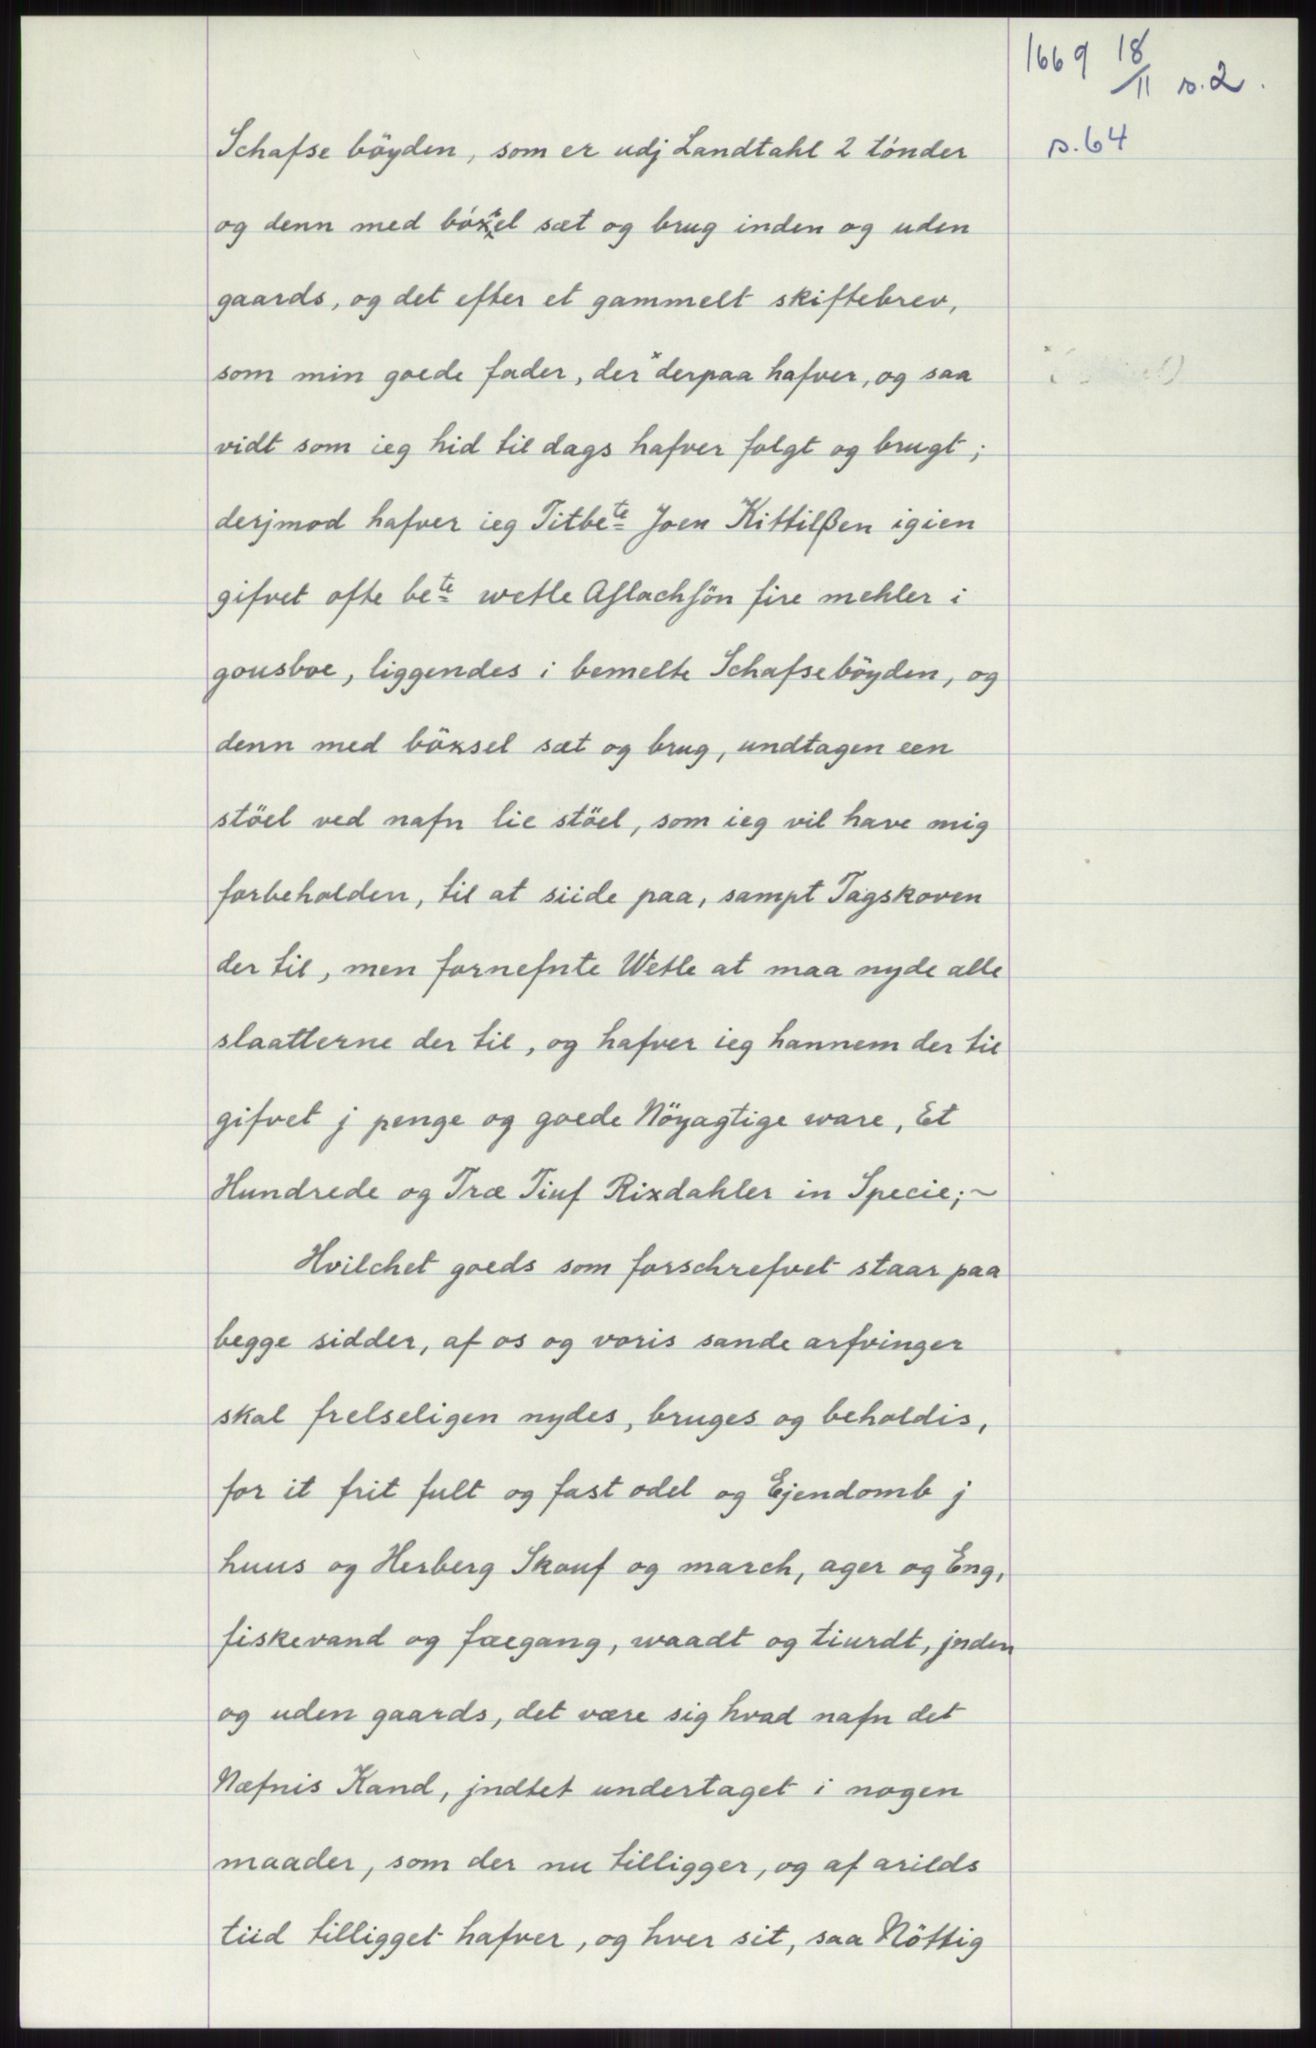 1669 18/11 s. 2.
s. 64
Schafse böyden, som er udj Landtahl 2 tónder
og denn med bóxel sæt og brug inden og uden
gaards, og det efter et gammelt skiftebrev,
som min goede fader, der x derpaa hafver, og saa
vidt som ieg hid til dags hafver folgt og brugt;
derjmod hafver ieg Titbete Joen Kittilßen igien
gifvet ofte bete wetle Aslachsön fire mehler i
gousboe, liggendes i bemelte Schafseböyden, og
denn med böxsel sæt og brug, undtagen een
stöel ved nafn lie stöel, som ieg vil have mig
forbeholden, til at siide paa, sampt Tagskoven
der til, men fornefnte Wetle at maa nyde alle
slaatterne der til, og hafver ieg hannem der til
gifvet j penge og goede Nöyagtige ware, Et
Hundrede og Træ Tiuf Rixdahler in Specie;~
Hvilchet goeds som forschrefvet staar paa
begge sidder, af os og voris sande arfvinger
skal frelseligen nydes, bruges og beholdis,
for it frit fult og fast odel og Ejendomb j
huus og Herberg Skouf og march, ager og Eng,
fiskevand og fægang, waadt og tiurdt, jnden
og uden gaards, det være sig hvad nafn det
Næfnis Kand, jndtet undertaget i nogen
maader, som der nu tilligger, og af arilds
tiid tilligget hafver, og hver sit, saa Nöttig